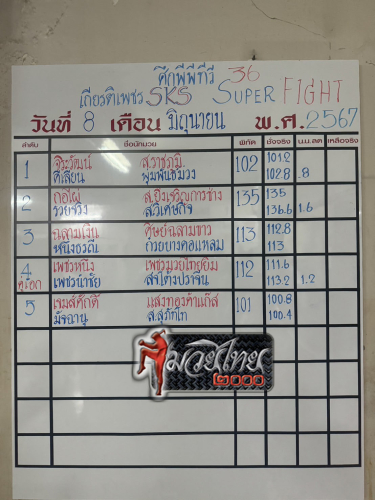 ศึกพีพีทีวี 36
เกียรติเพชร SKS SUPER FIGHT
วันที่ 8 เดือน มิถุนายน พ.ศ. 2567
ลำดับ ชื่อนักมวย พิกัด ชั่งจริง น.น.ลด เหลือจริง
1 จิระวัฒน์ ส.วาชภูมิ 102 101.2
ศีลเสียน พุ่มพันธ์ม่วง 102.8 .8
2 กอไผ่ ส.ยิ่งเจริญการช่าง 135 135
รวยจริง ส.วิเศษกิจ 136.6 1.6
3 ฉลามเงิน ศิษย์ฉลามขาว 113 112.8
หนึ่งอวตี ถวยบางคอแหลม 113
4 เพชรหนึ่ง เพชรมวยไทยยิม 112 111.6
คู่เอก เพชรนำชัย ส.จ.โต้งปราจีน 113.2 1.2
5 เจมส์ศักดิ์ แสงทองค้าแก๊ส 101 100.8
มังฉานุ ส.สุภัทโท 100.4
มวยไทย
๒๐๐๐